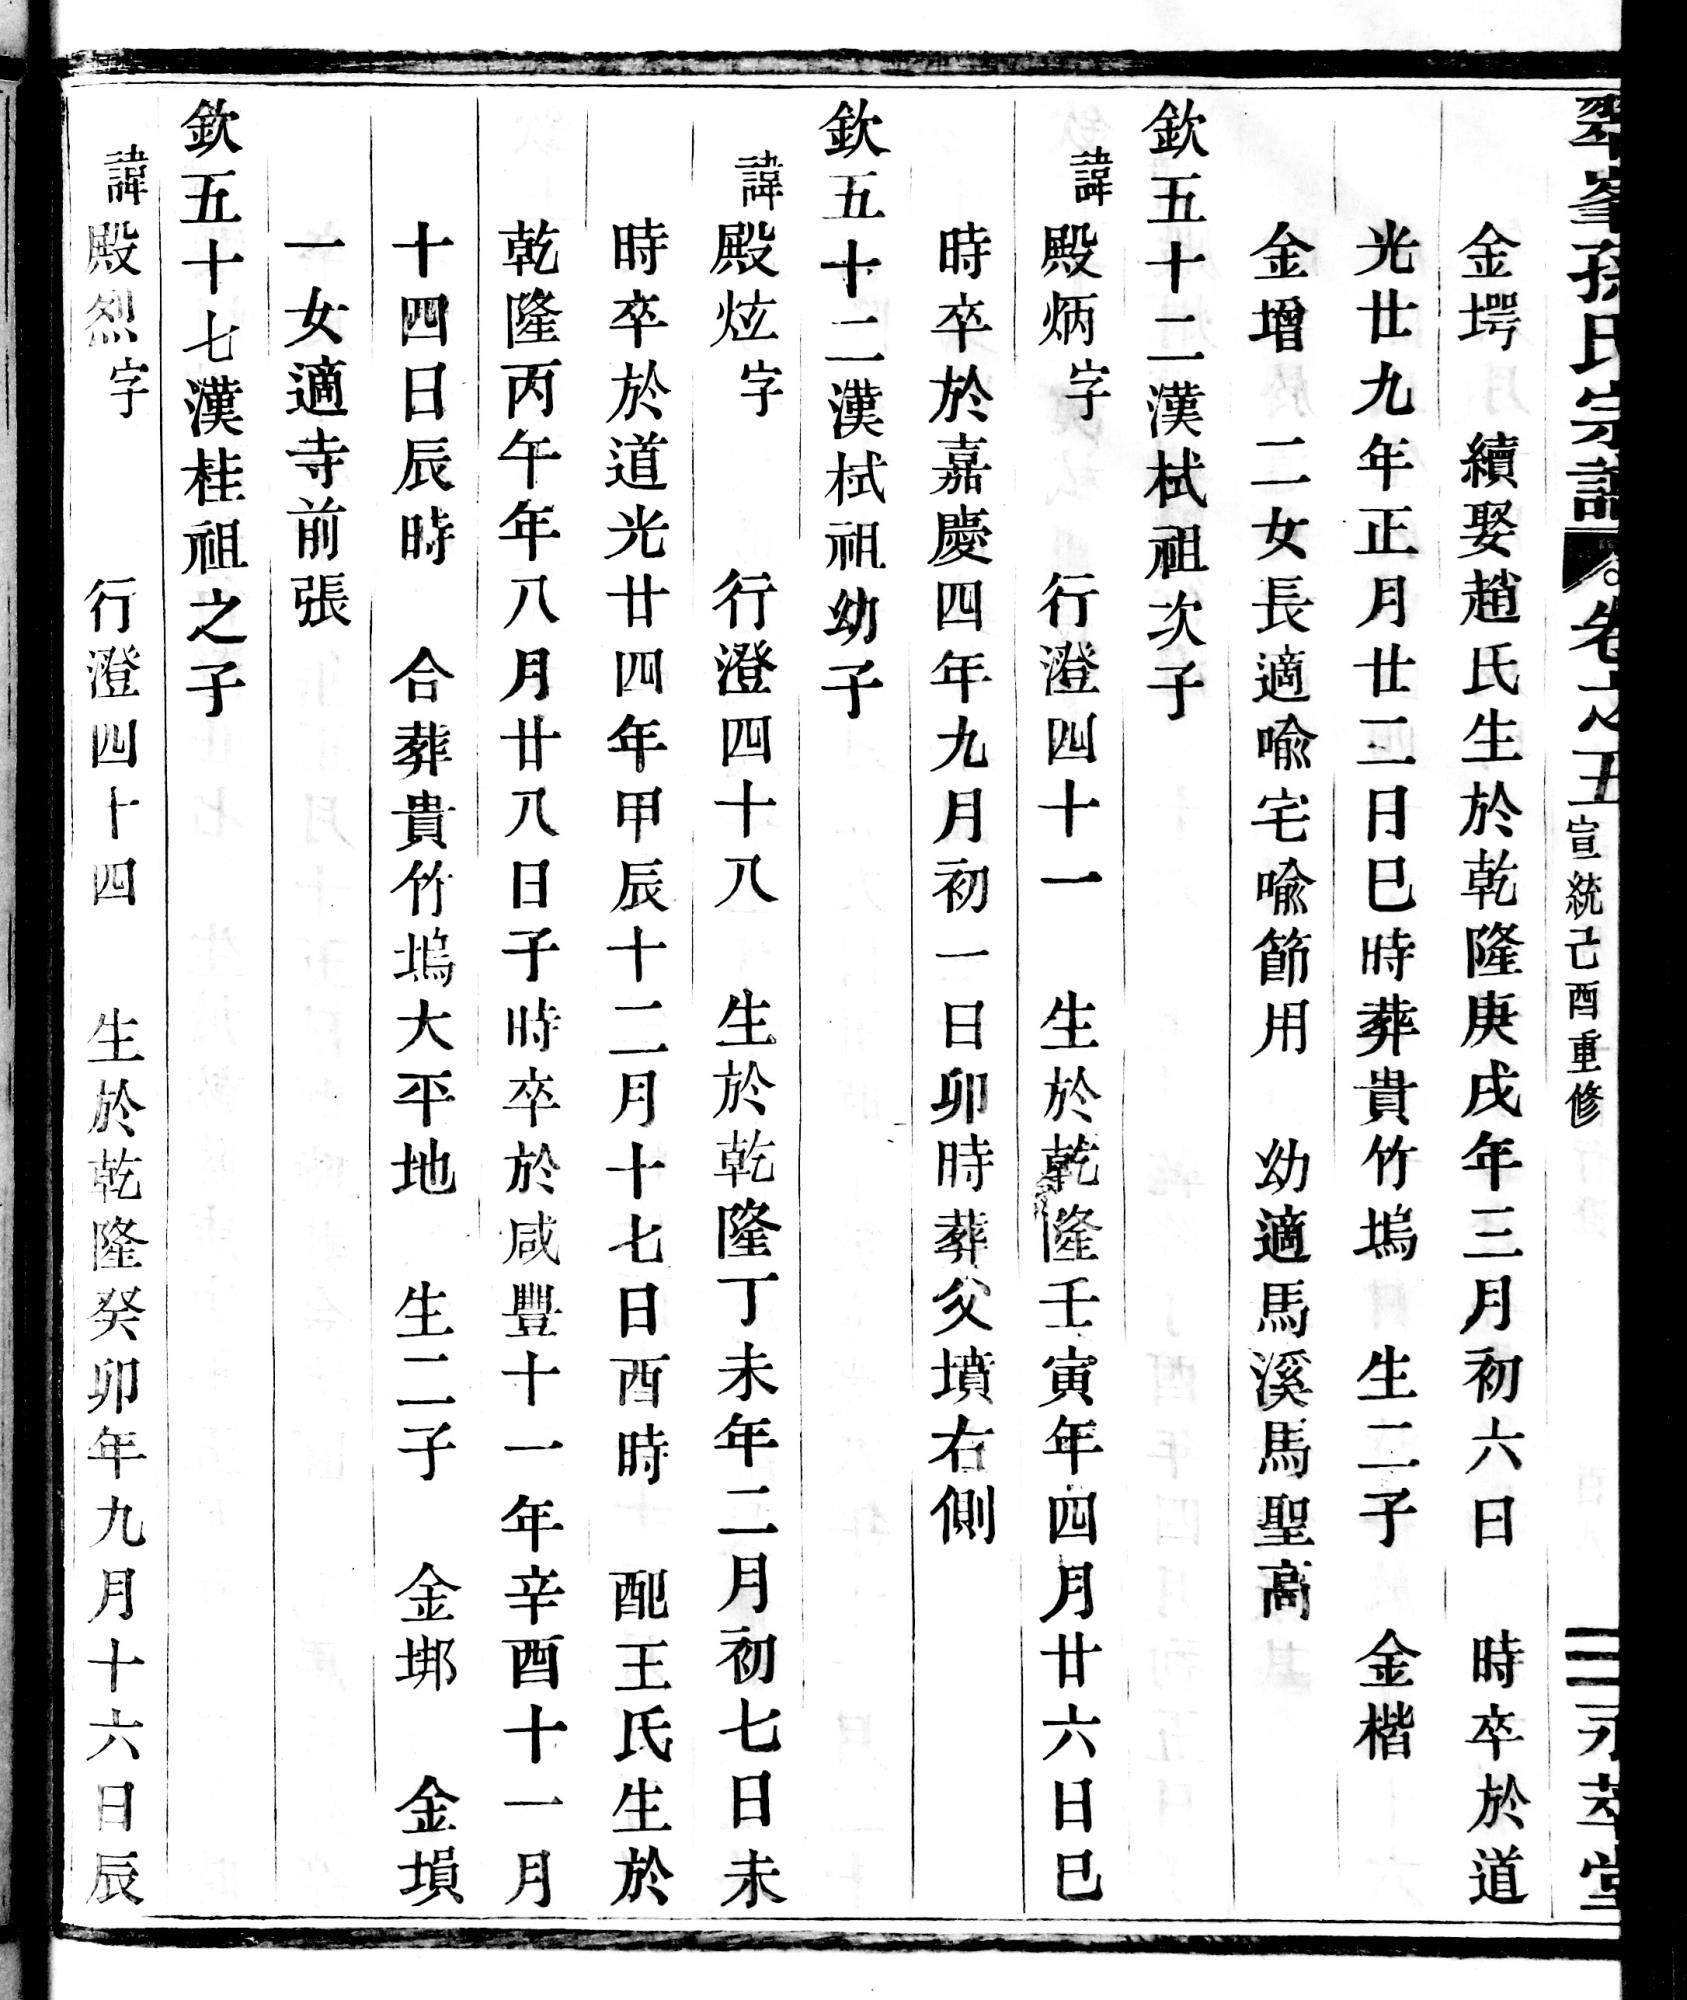 翠峯孫氏宗譜 卷之五 宣統己酉重修 三 永萃堂
金堮 續娶趙氏生於乾隆庚戌年三月初六日 時卒於道
光廿九年正月廿三日巳時葬貴竹塢 生二子 金楷
金增 二女長適喻宅喻節用 幼適馬溪馬聖高
欽五十二漢栻祖次子
諱殿炳字 行澄四十一 生於乾隆壬寅年四月廿六日巳
時卒於嘉慶四年九月初一日卯時葬父墳右側
欽五十二漢栻祖幼子
諱殿炫字 行澄四十八 生於乾隆丁未年二月初七日未
時卒於道光廿四年甲辰十二月十七日酉時 配王氏生於
乾隆丙午年八月廿八日子時卒於咸豐十一年辛酉十一月
十四日辰時 合葬貴竹塢大平地 生二子 金垹 金塤
一女適寺前張
欽五十七漢桂祖之子
諱殿烈字 行澄四十四 生於乾隆癸卯年九月十六日辰